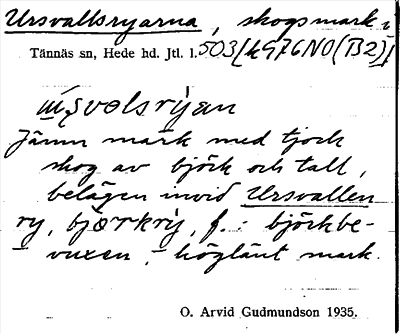 Ursvallsryarna, skogsmark i
Tännäs sn, Hede hd. Jtl. l. 503 [k976NO(B2)]
Jämn mark med tjock
skog av björk och tall,
belägen invid Ursvallen
ry, bjœrkrỳ, f. - björkbe-
vuxen, höglänt mark.
O. Arvid Gudmundson 1935.